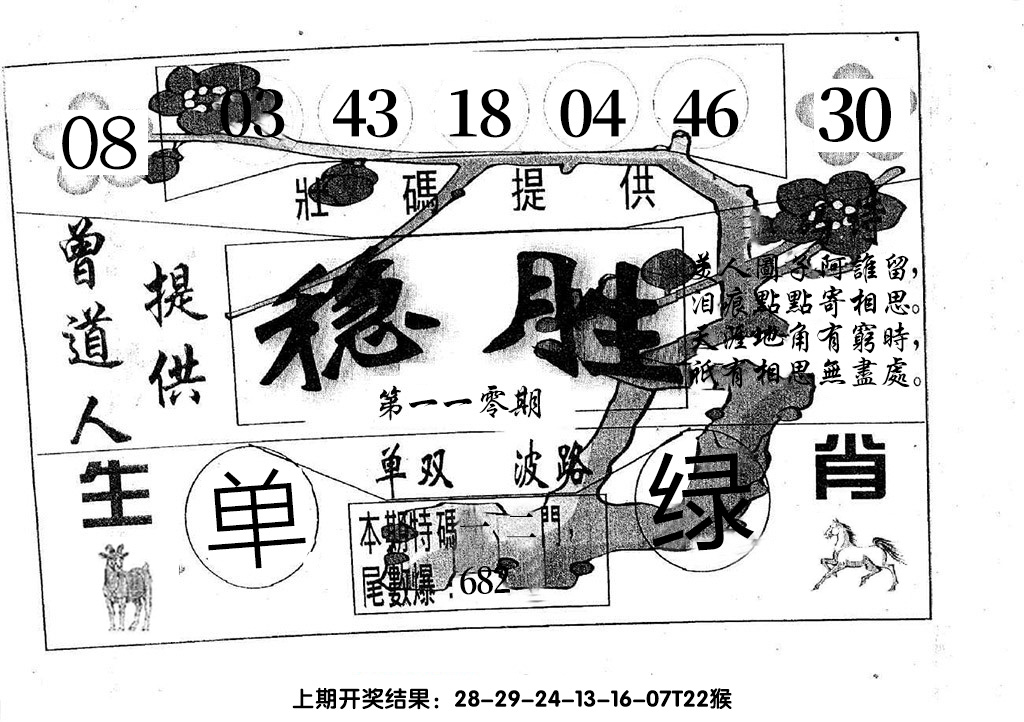 08 03 43 18 04 46 30
壯碼提供
特
曾道人
提供
稳胜
第一一零期
人圃子阿誰留，
泪痕點點寄相思。
天涯地角有窮時，
祇有相思無盡處。
单双 波路
生肖
单
绿
本期特碼一、二門，
尾數爆:682
上期开奖结果：28-29-24-13-16-07T22猴